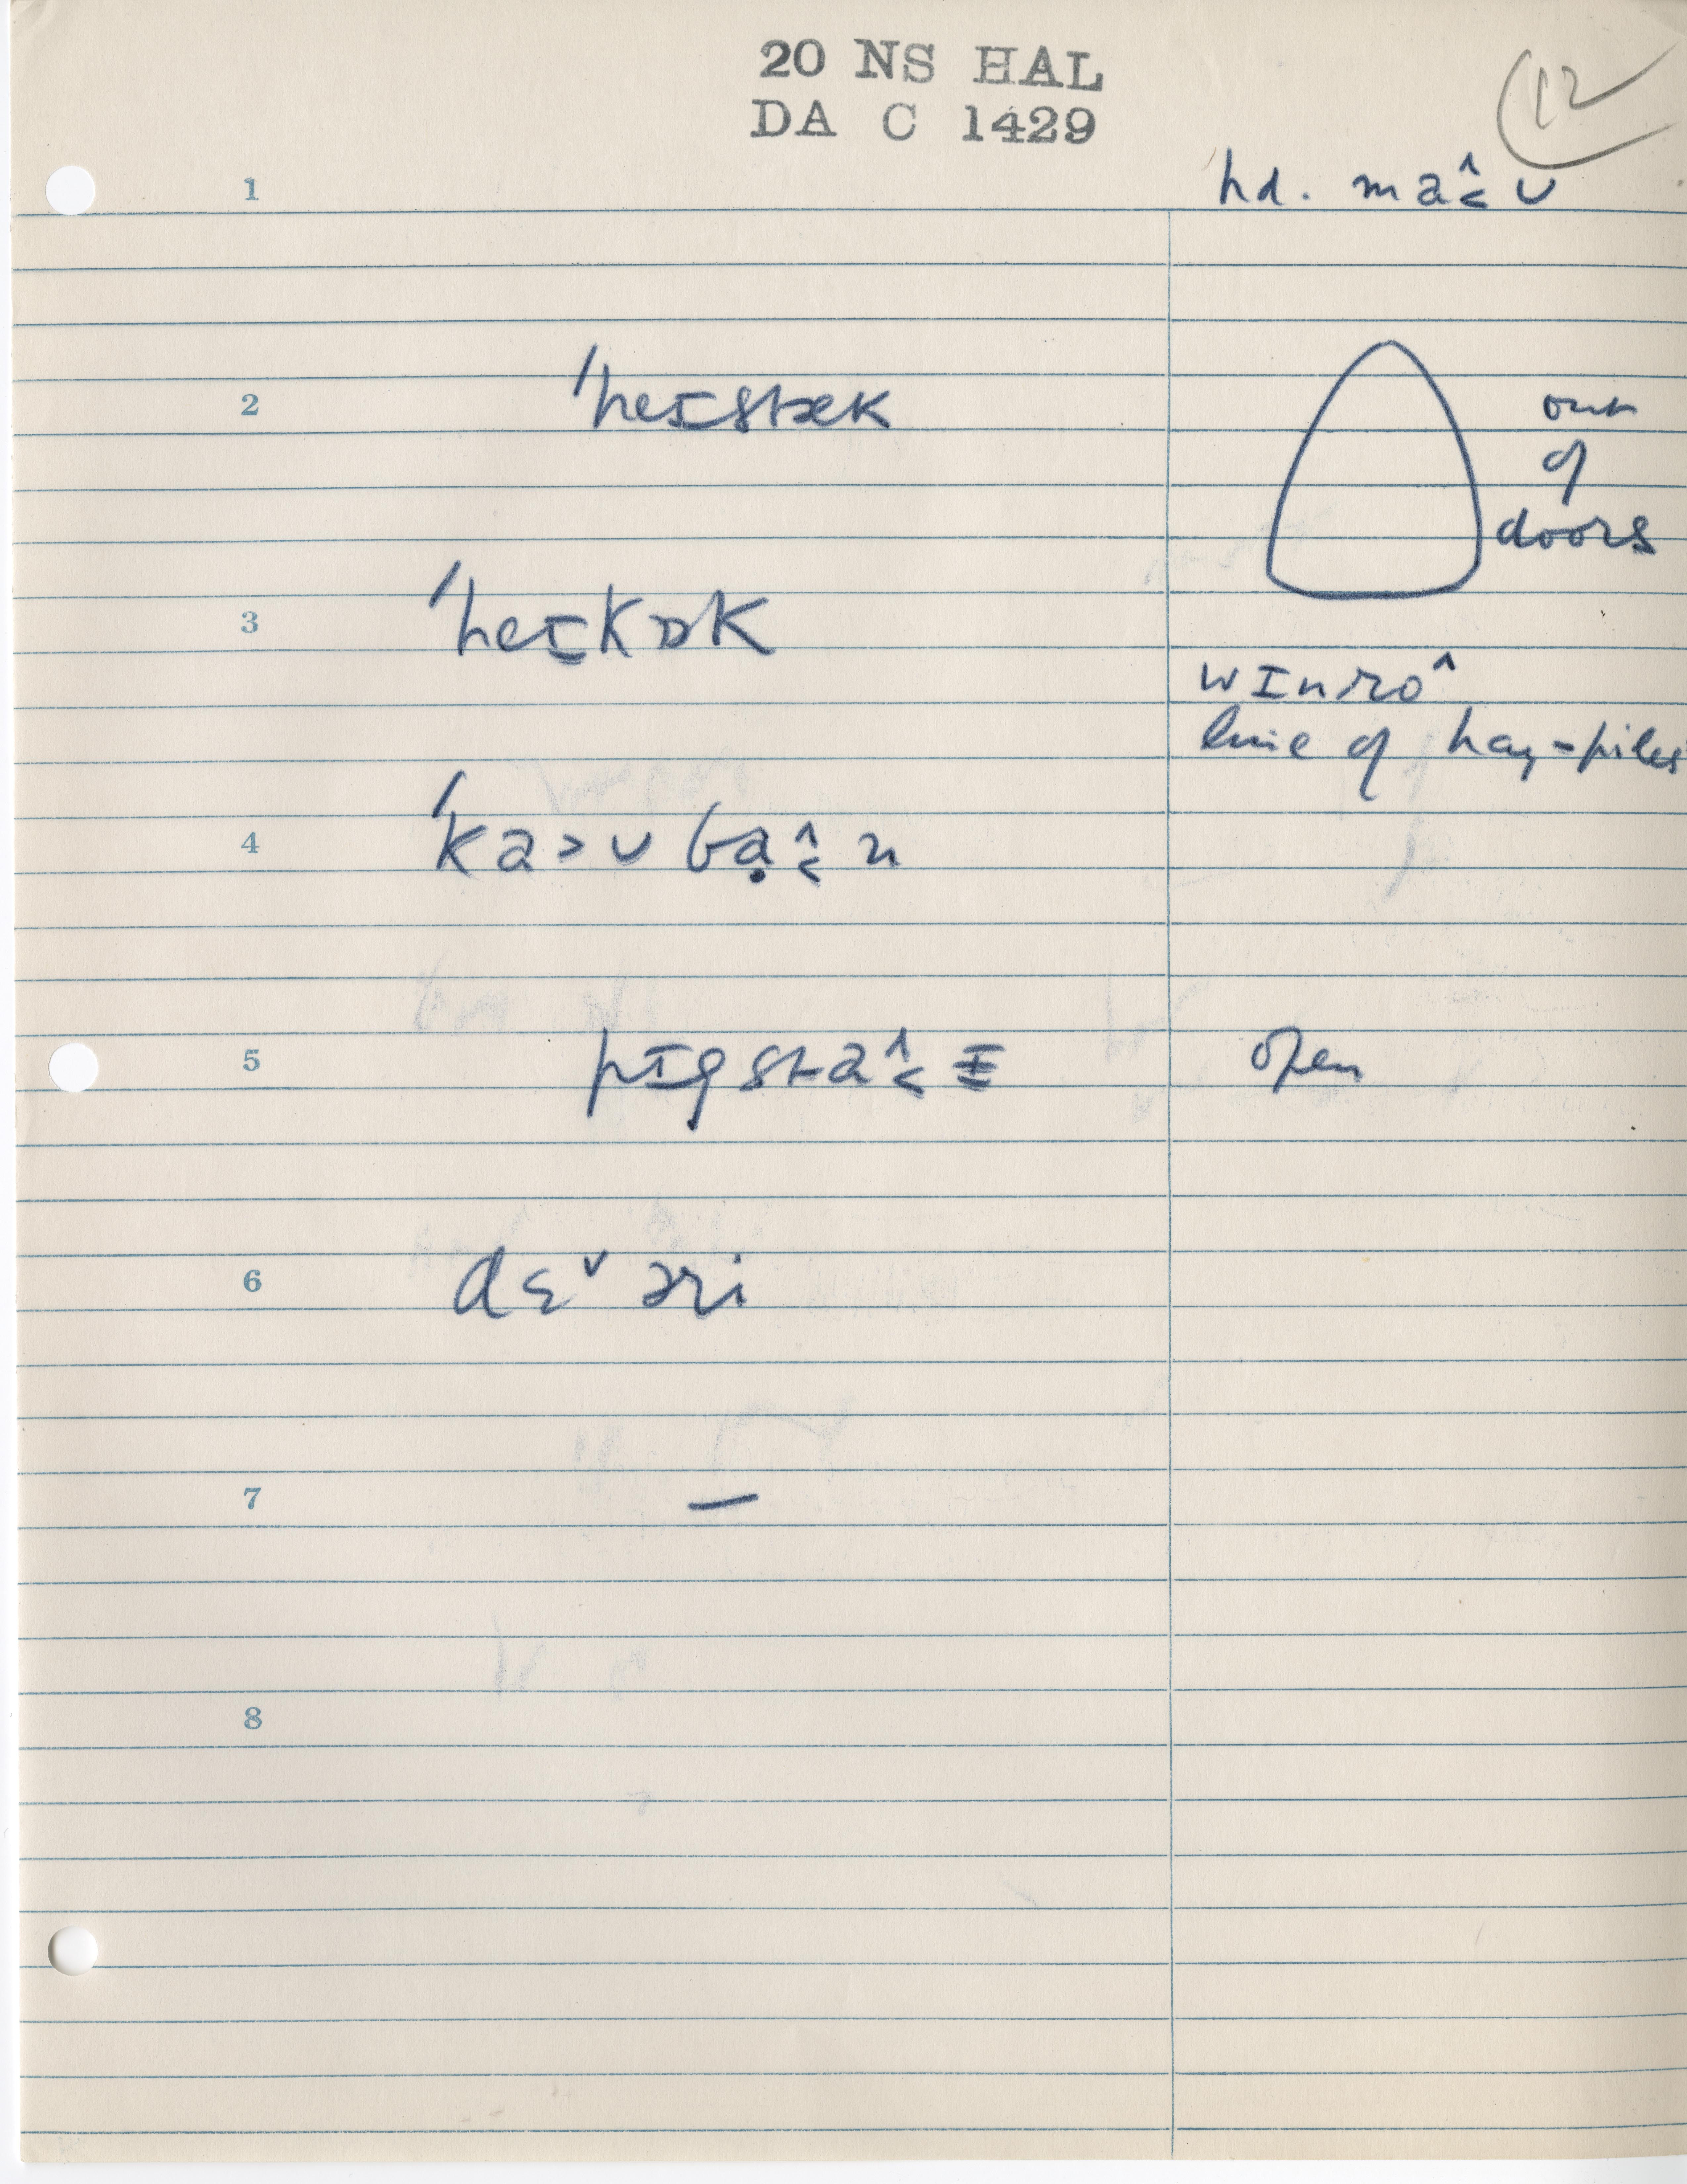 20 NS HAL
DA C 1429
12
1 hd. ma^˂ ᴜ
2 'heɪstæk
out
of
doors
3 'heɪkɒk
wɪnro^
line of hay-piles
4 'ka˃ᴜ bạ^˂n
5 pɪgsta^˂ɪ open
6 dɛˇəri
7 —
8